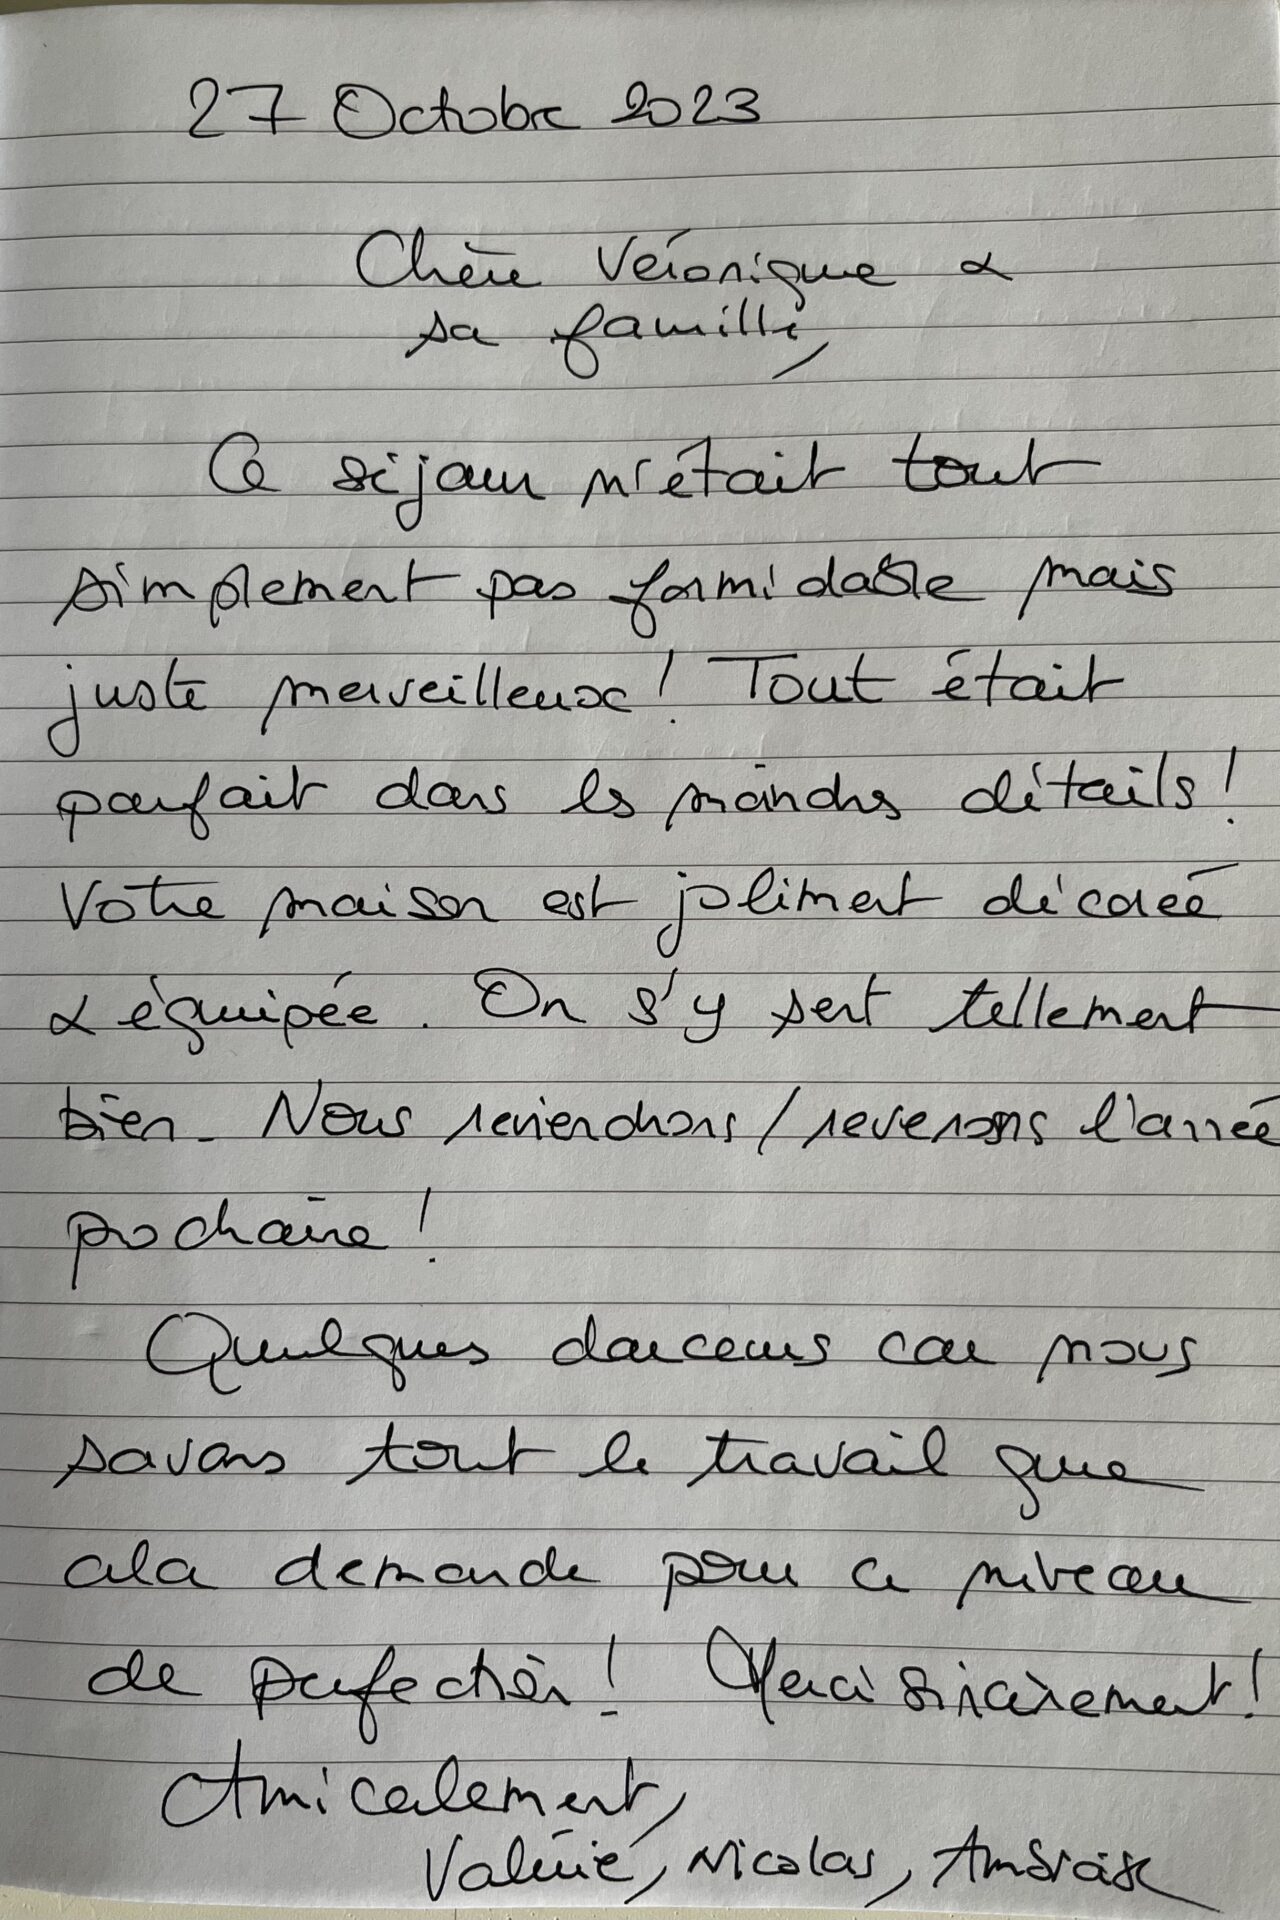 27 Octobre 2023
Chère Véronique &
sa famille,
Ce séjour n'était tout
simplement pas formidable mais
juste merveilleux ! Tout était
parfait dans les moindres détails !
Votre maison est joliment décorée
& équipée. On s'y sent tellement
bien. Nous reviendrons / reverons l'année
prochaine !
Quelques douceurs car nous
savons tout le travail que
cela demande pour ce niveau
de perfection ! Merci sincèrement !
Amicalement,
Valérie, Nicolas, Ambroise